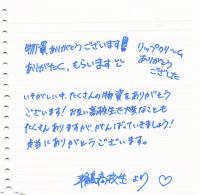 物資ありがとうございます!!
ありがたく、もらいます
リップクリーム
ありがとう
ございました
いそがしい中、たくさんの物資をありがとう
ございます! お互い高校生で大変なことも
たくさんありますが、がんばっていきましょう!
本当にありがとうございます。
輪島高校生 より ♡